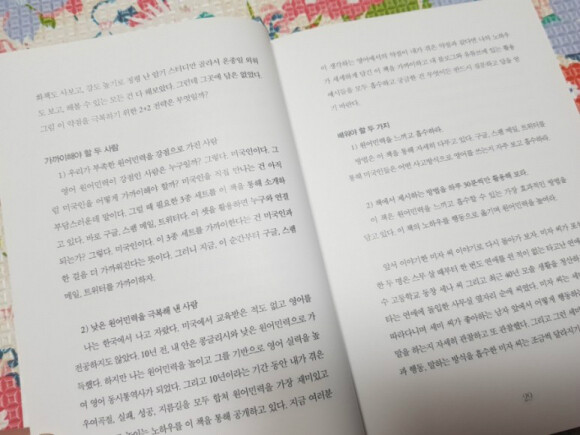 봤해도 사보고, 강도 높기로 정평 난 암기 스터디만 골라서 온종일 외워
도 보고, 해볼 수 있는 모든 건 다 해보았다. 그런데 그곳에 답은 없었다.
그럼 이 약점을 극복하기 위한 2+2 전략은 무엇일까?
가까이해야 할 두 사람
1) 우리가 부족한 원어민력을 강점으로 가진 사람
영어 원어민력이 강점인 사람은 누구일까? 그렇다. 미국인이다. 그
럼 미국인을 어떻게 가까이해야 할까? 미국인을 직접 만나는 건 아직
부담스러운데 말이다. 그럴 때 필요한 3종 세트를 이 책을 통해 소개하
고 있다. 바로 구글, 스팸 메일, 트위터다. 이 셋을 활용하면 누구와 연결
되는가? 그렇다. 미국인이다. 이 3종 세트를 가까이한다는 건 미국인과
한 걸음 더 가까워진다는 뜻이다. 그러니 지금, 이 순간부터 구글, 스팸
메일, 트위터를 가까이하자.
2) 낮은 원어민력을 극복해 낸 사람
나는 한국에서 나고 자랐다. 미국에서 교육받은 적도 없고 영어를
전공하지도 않았다. 10년 전, 내 안은 콩글리시와 낮은 원어민력으로 가
득했다. 하지만 나는 원어민력을 높이고 그를 기반으로 영어 실력을 높
여 영어 동시통역사가 되었다. 그리고 10년이라는 기간 동안 내가 겪은
우여곡절, 실패, 성공, 지름길을 모두 합쳐 원어민력을 가장 재미있고
높이는 노하우를 이 책을 통해 공개하고 있다. 지금 여러분
이 생각하는 영어에서의 약점이 내가 겪은 약점과 같다면 나의 노하우
가 자세하게 담긴 이 책을 가까이하고 내 블로그와 유튜브에 있는 활용
메시들을 모두 흡수하고 궁금한 건 무엇이든 반드시 질문하고 답을 얻
기 바란다.
배워야 할 두 가지
1) 원어민력을 느끼고 흡수하라.
방법은 이 책을 통해 자세히 다루고 있다. 구글, 스팸 메일, 트위터를
통해 미국인들은 어떤 사고방식으로 영어를 쓰는지 자주 보고 흡수하라.
2) 책에서 제시하는 방법을 하루 30분씩만 활용해 보라.
이 책은 원어민력을 느끼고 흡수할 수 있는 가장 효과적인 방법을
담고 있다. 이 책의 노하우를 행동으로 옮기며 원어민력을 높여라.
앞서 이야기한 미자 씨 이야기로 다시 돌아가 보자. 미자 씨가 보
한 두 명은 스무 살 때부터 한 번도 연애를 쉰 적이 없는 타고난 연애
수 고등학교 동창 세나 씨 그리고 최근 40년 모솔 생활을 청산하
타는 연애에 몰입한 사무실 옆자리 순애 씨였다. 미자 씨는 여
따라다니며 세미 씨가 좋아하는 남자 앞에서 어떻게 행동하
말을 하는지 자세히 관찰하고 또 관찰했다. 그리고 그런 세미
과 행동, 말하는 방식을 흡수한 미자 씨는 조금씩 달라지기
29